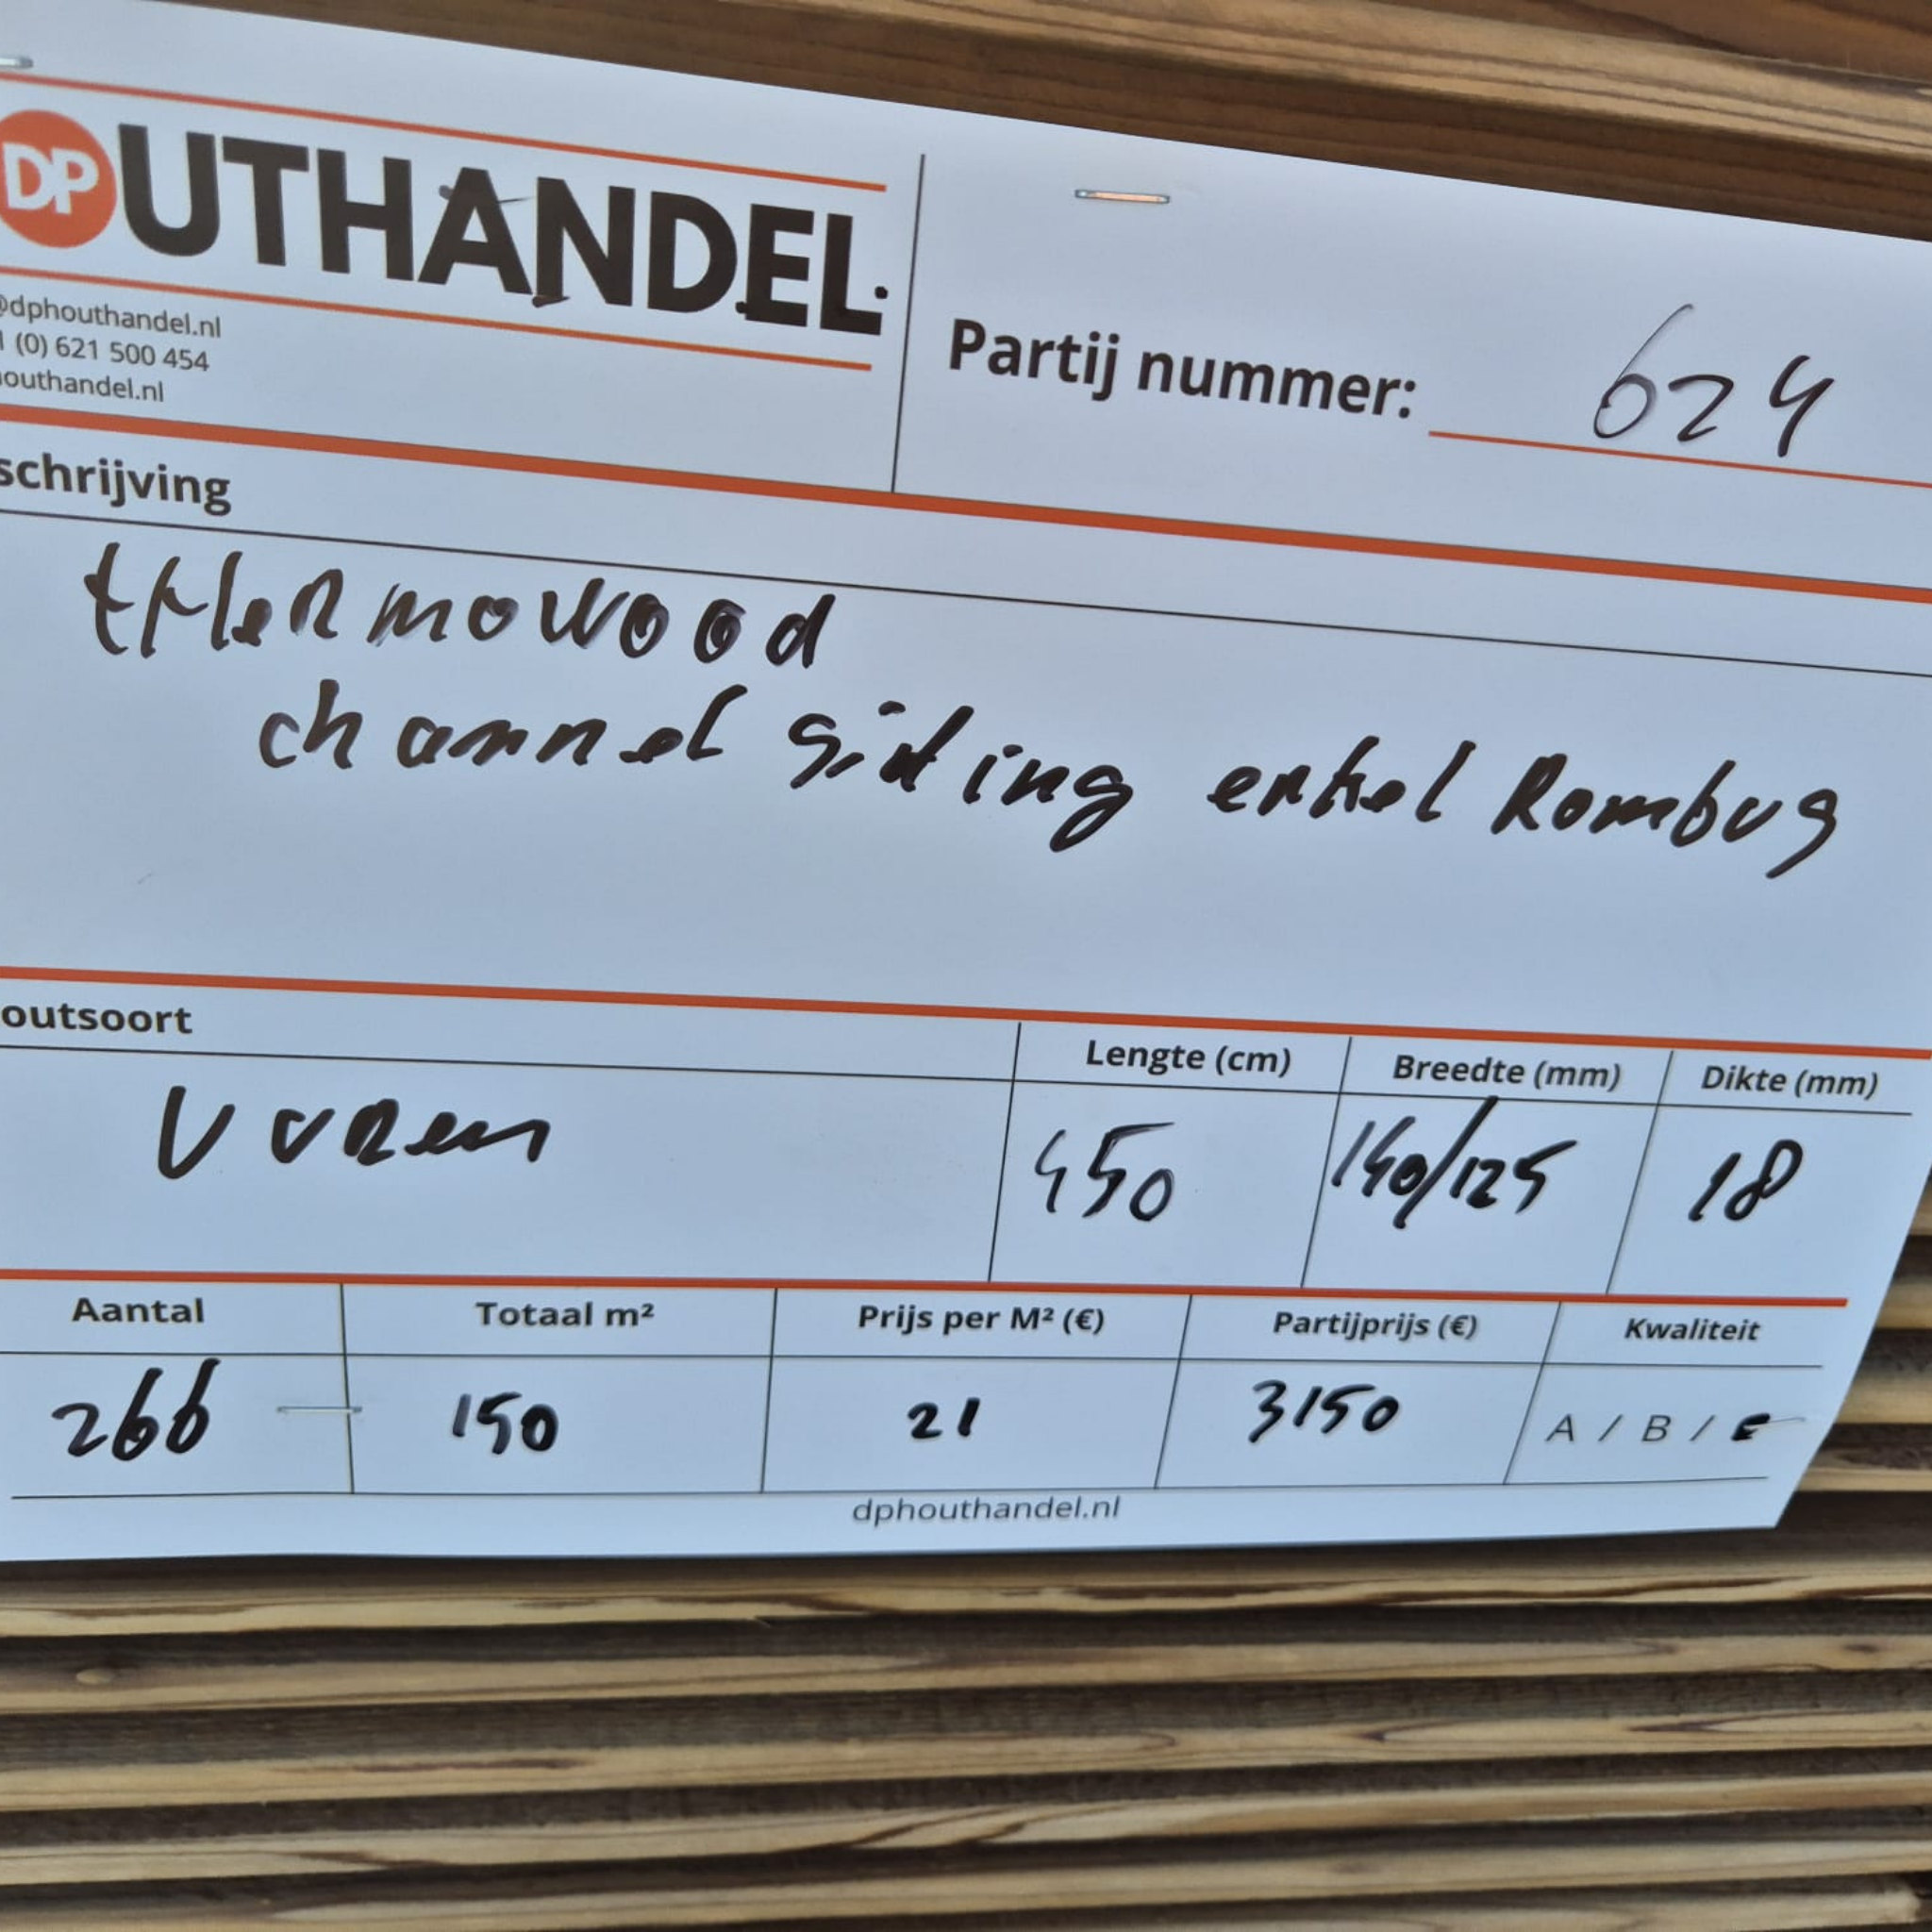 DP UTHANDEL
@dphouthandel.nl
(0) 621 500 454
outhandel.nl
Partij nummer: 624
schrijving
tHermowood
channel siding enkel Rombus
outsoort
Lengte (cm) Breedte (mm) Dikte (mm)
Vuren 450 140/125 18
Aantal Totaal m² Prijs per M² (€) Partijprijs (€) Kwaliteit
266 150 21 3150 A / B / C
dphouthandel.nl